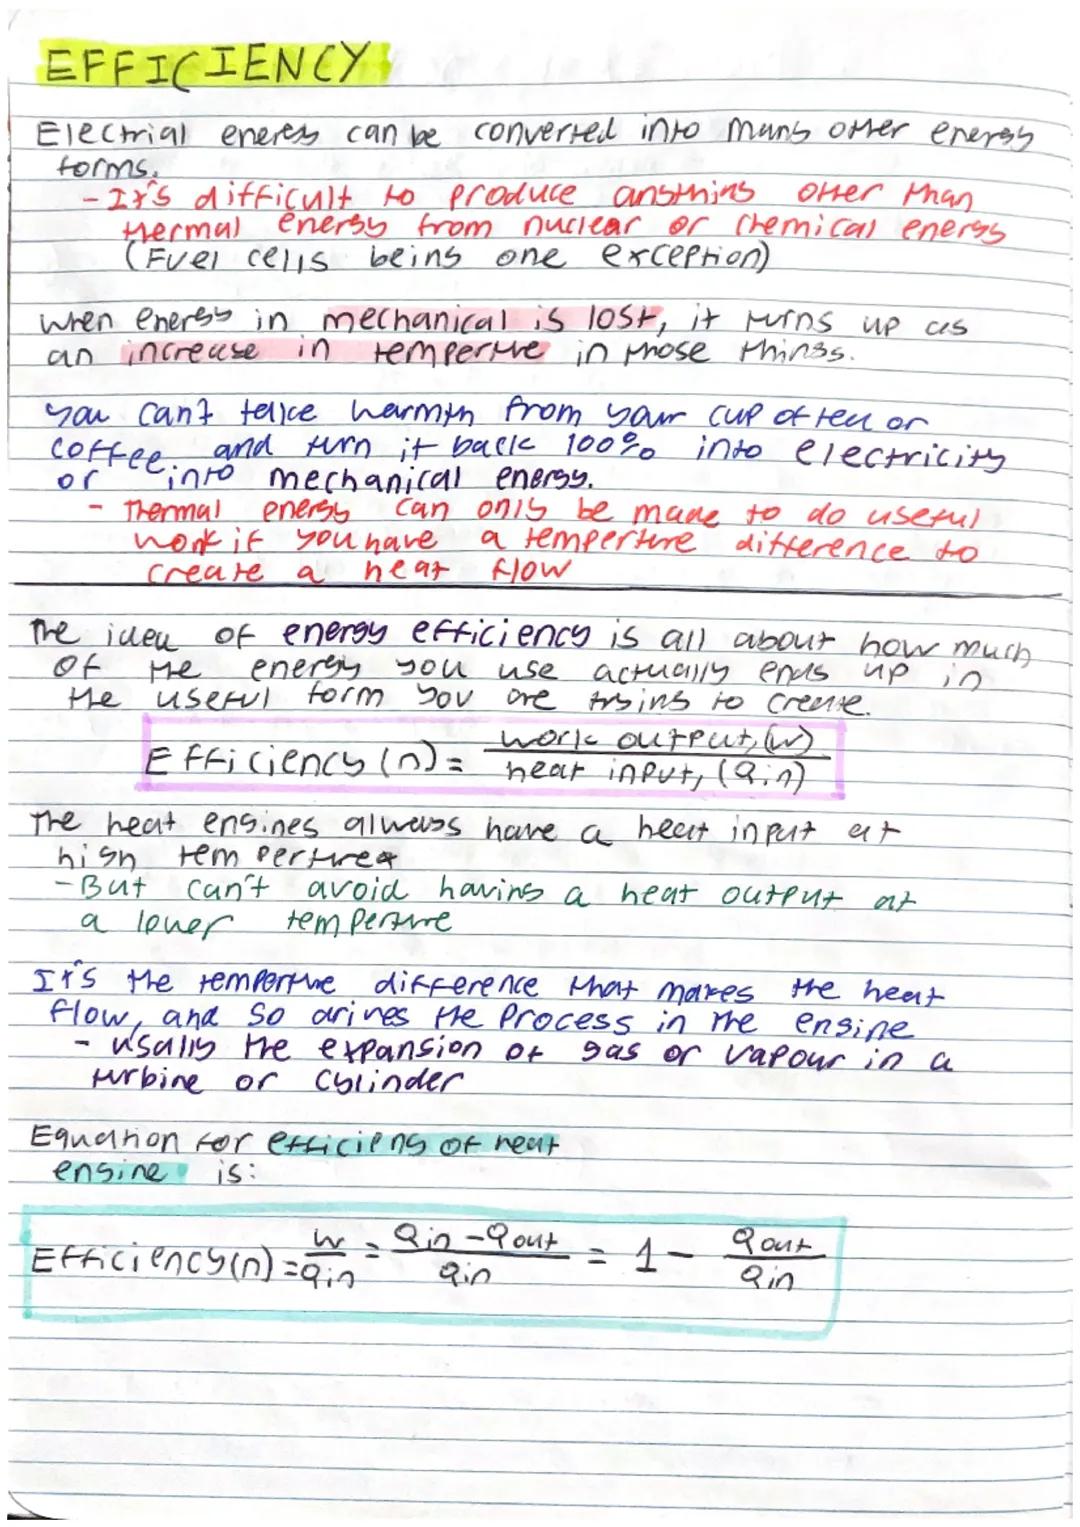 EFFICIENCY
Electrial energy can be converted into many other energy
forms.
- It's difficult to produce anything other than
thermal energy from nuclear or chemical energy
(Fuel cells being one exception)
When energy in mechanical is lost, it turns up as
an increase in temperture in those things.
You can't take warmth from your cup of tea or
coffee and turn it back 100% into electricity
or into mechanical energy.
- Thermal energy can only be made to do useful
work if you have a temperture difference to
create a heat flow
The idea of energy efficiency is all about how much
of the energy you use actually ends up in
the useful form you are trying to create.
Efficiency (n) = work output, (w)
heat input, (Qin)
The heat engines always have a heat input at
high temperturea
- But can't avoid having a heat output at
a lower temperture
It's the temperture difference that makes the heat
flow, and so drives the process in the engine
- usally the expansion of gas or vapour in a
turbine or cylinder
Equation for efficieny of heat
engine is:
Efficiency (n) = w/Qin = Qin - Qout/Qin = 1 - Qout/Qin